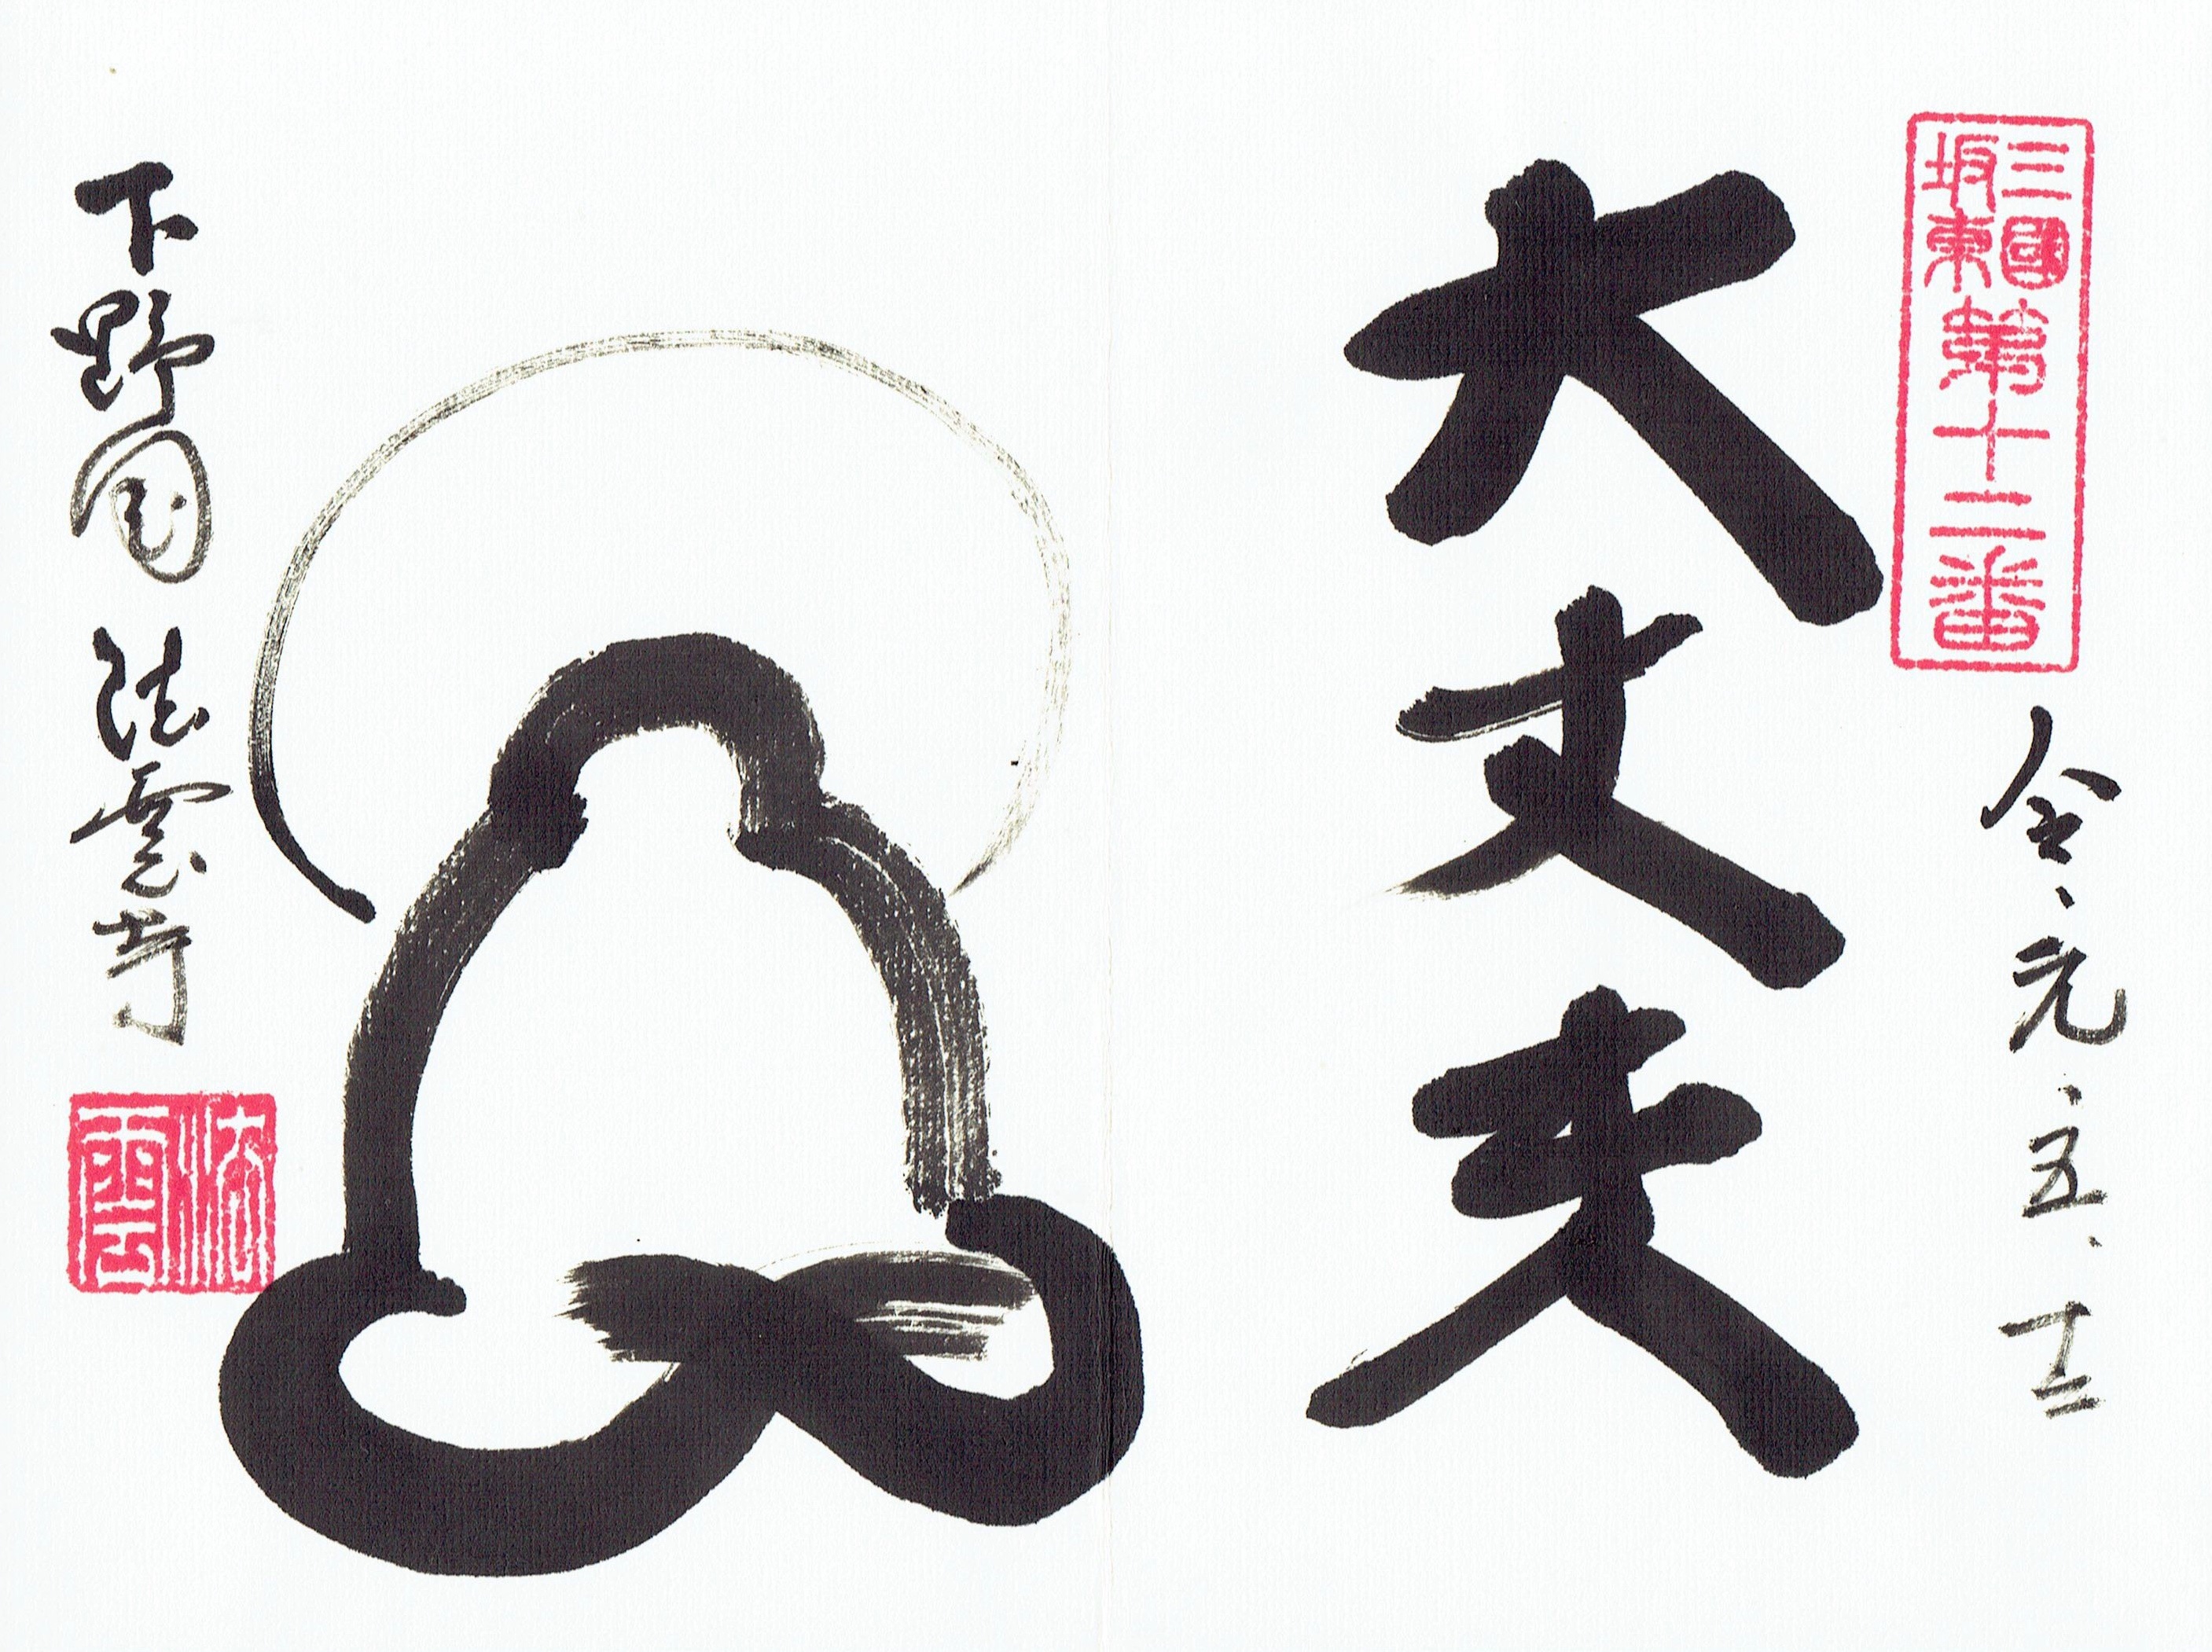 三國
坂東
第十二番
令、元、五、十二
大丈夫
下野国 法雲寺
法雲